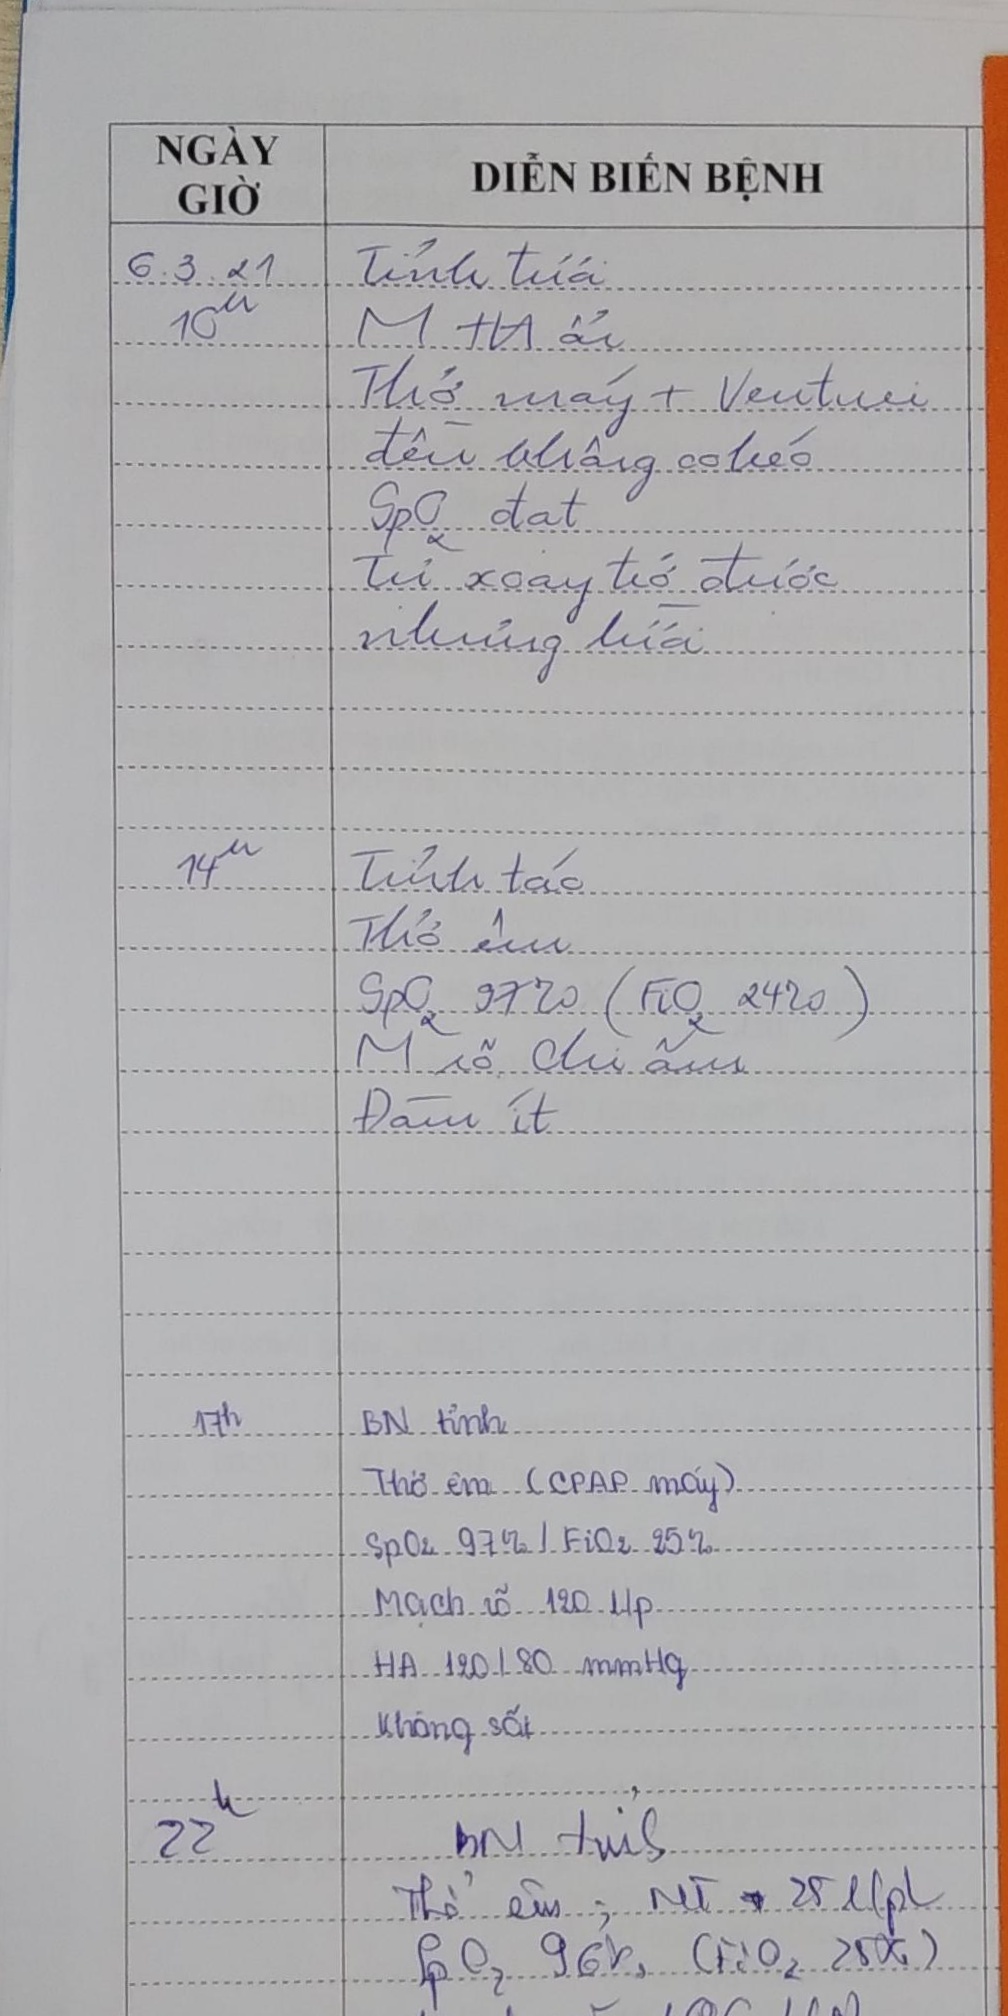 NGÀY
GIỜ
DIỄN BIẾN BỆNH
6.3.21
Tỉnh
10h
M HA ổn
Thở máy + Venturi
đều không co kéo
SpO2 đạt
Tự xoay trở được
14h
Tỉnh táo
Thở êm
SpO2 97% (FiO2 24%)
M rõ, chi ấm
Đàm ít
17h
BN tỉnh
Thở êm (CPAP máy)
SpO2 97% / FiO2 25%
Mạch rõ 120 l/p
HA 120/80 mmHg
Không sốt
22h
BN tỉnh
Thở êm; NT 25 l/ph
SpO2 96%, (FiO2 25%)